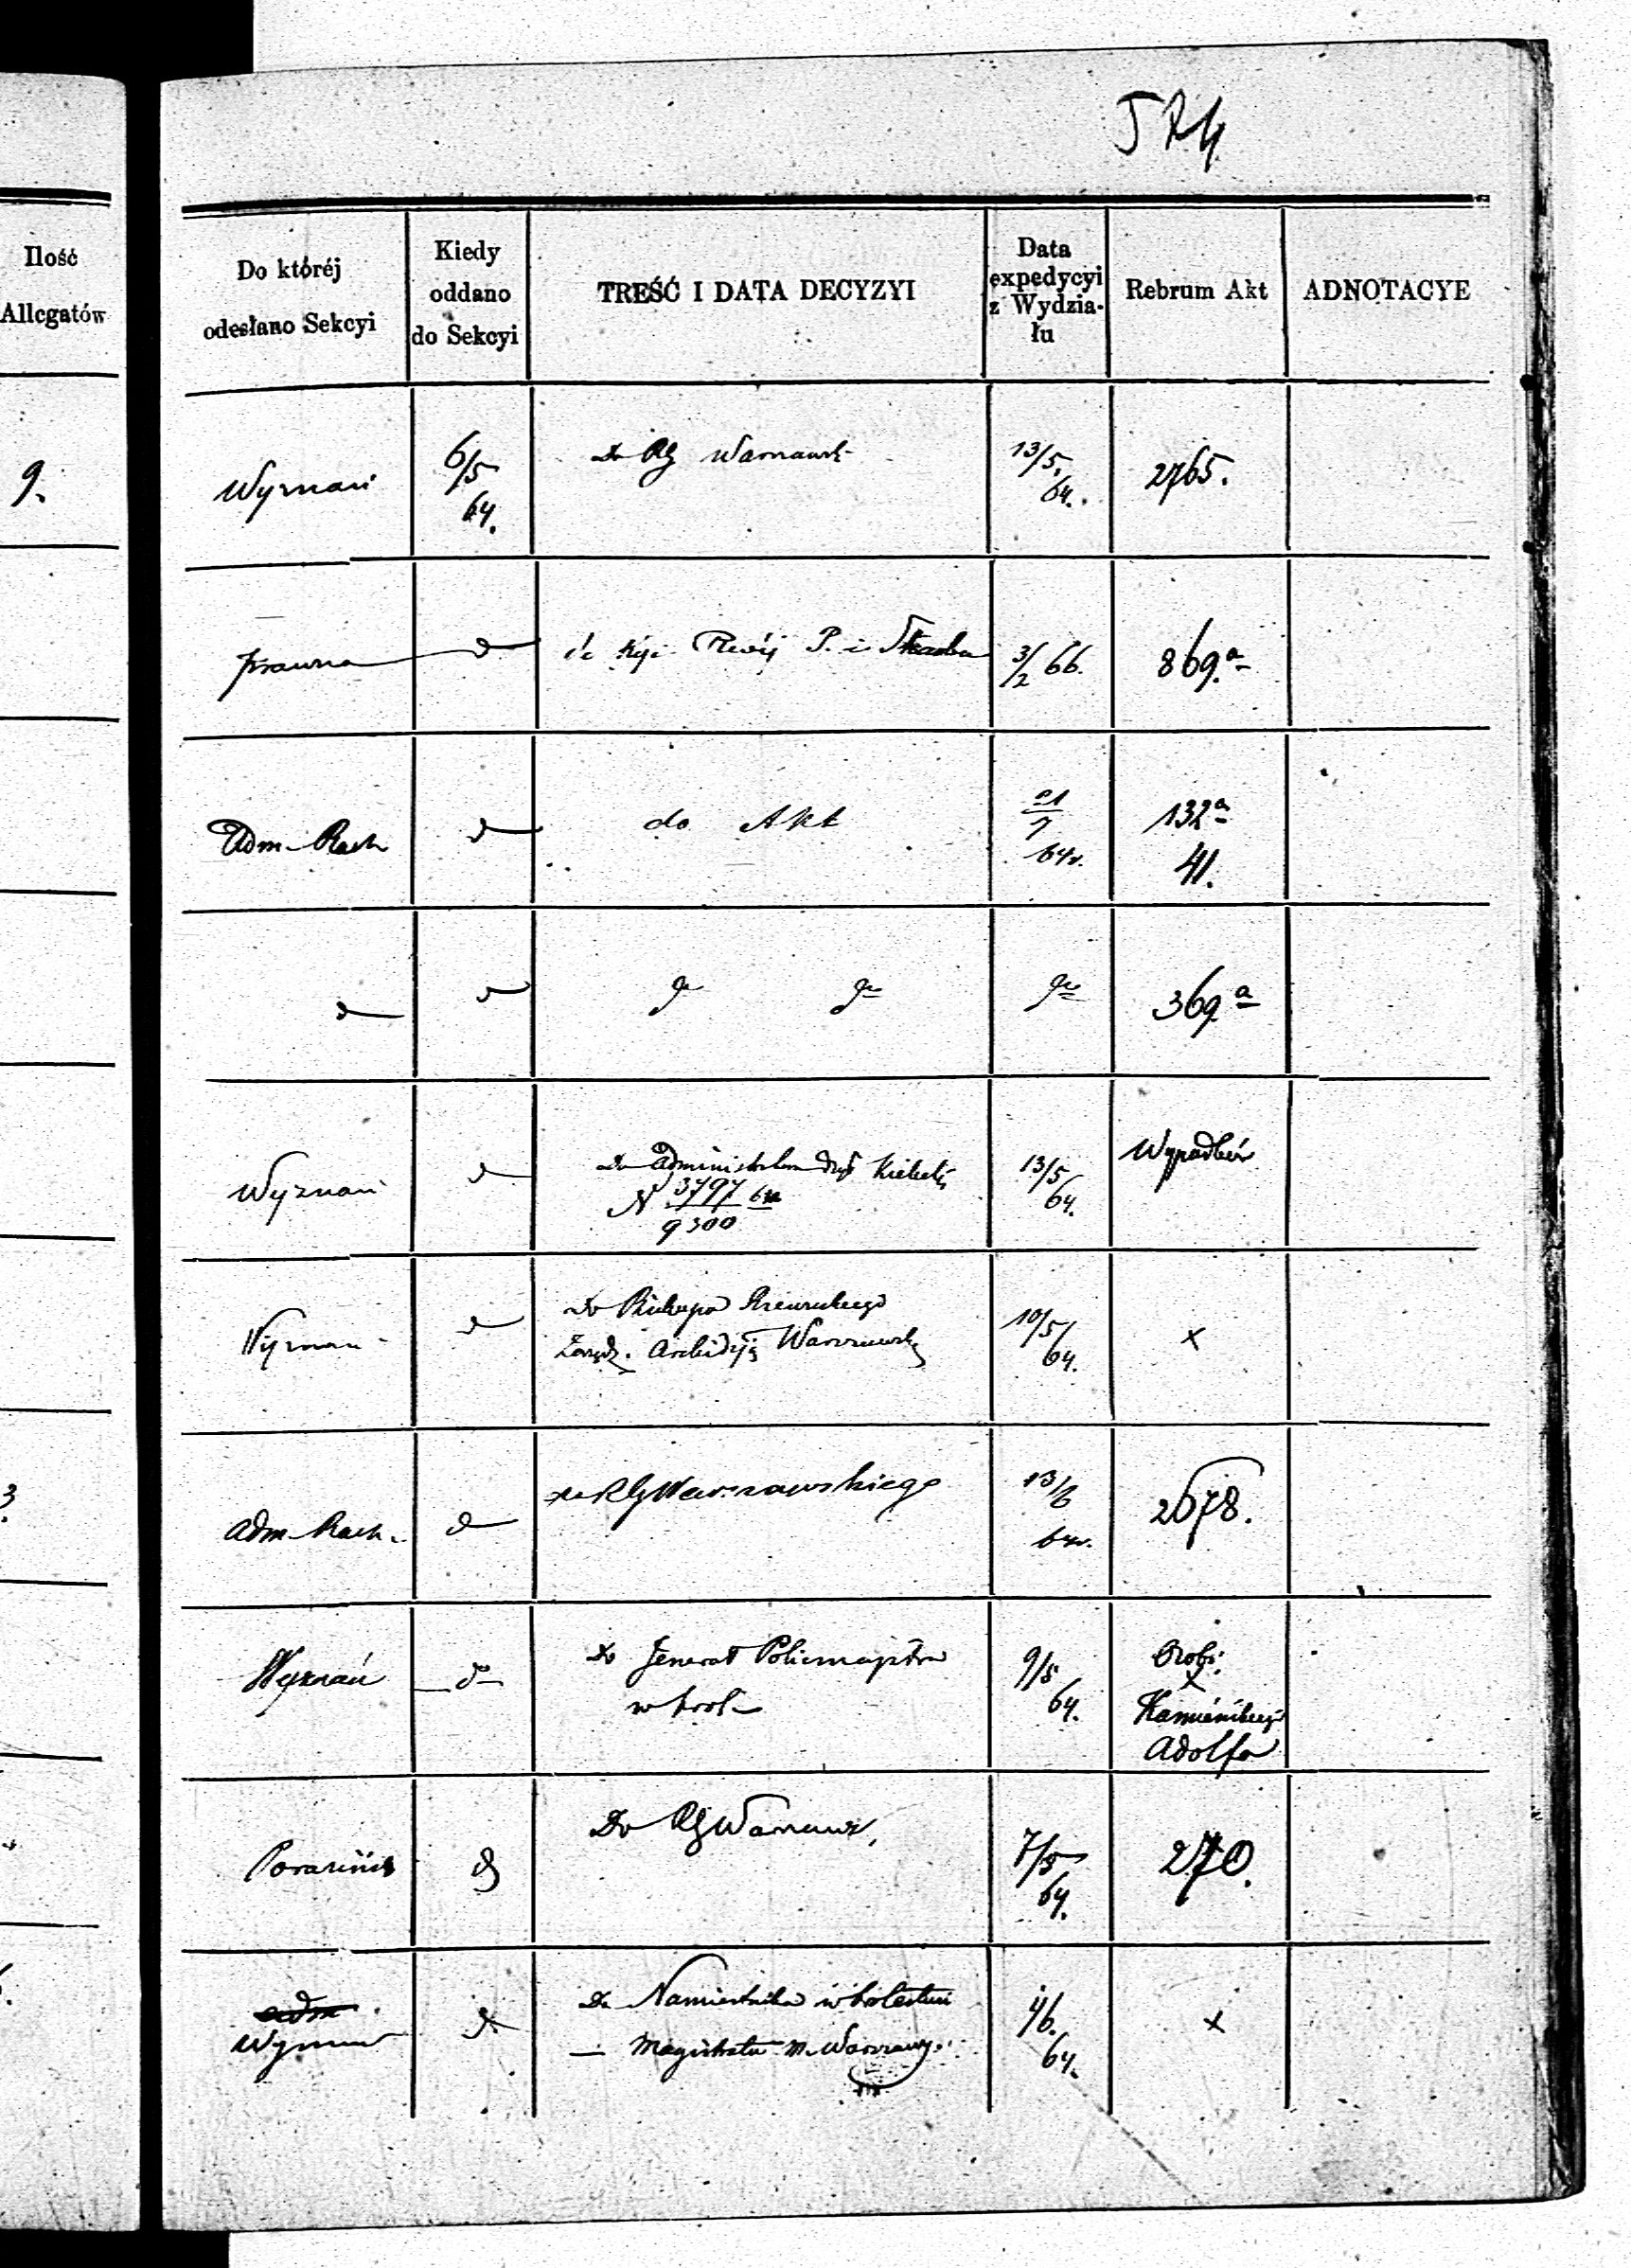 574
Ilość
Allegatów
Do któréj
odesłano Sekcyi
Kiedy
oddano
do Sekcyi
TREŚĆ I DATA DECYZYI
Data
expedycyi
z Wydzia-
łu
Rebrum Akt
ADNOTACYE
9.
Wyznań
6/5
64.
Do RG Warszawsk
13/5
64.
2765.
Prawna
d
P. i Skarbu
3/2 66.
869.a
Adm Rach
d
do Akt
21
64r.
132a
41.
d
d
369a
Wyznań
d
Do Administratora Kielecki
N 3797 64
9300
13/5
64.
Wyznań
d
Do Biskupa Rzewuskiego
Zarządz. Archidyj Warszawskij
10/5
64.
x
3
Adm Rach.
d
do RG Warszawskiego
13/6
64r.
2678.
Wyznań
d
Do Jenerał Policmajstra
w Król
9/5
64.
x
Kamińskiego
Adolfa
d
Do RG Warszaws.
7/5
64.
270.
adm
Wyznań
d
Do Namiestnika w Królestwie
— Magistratu m. Warszawy.
64.
x